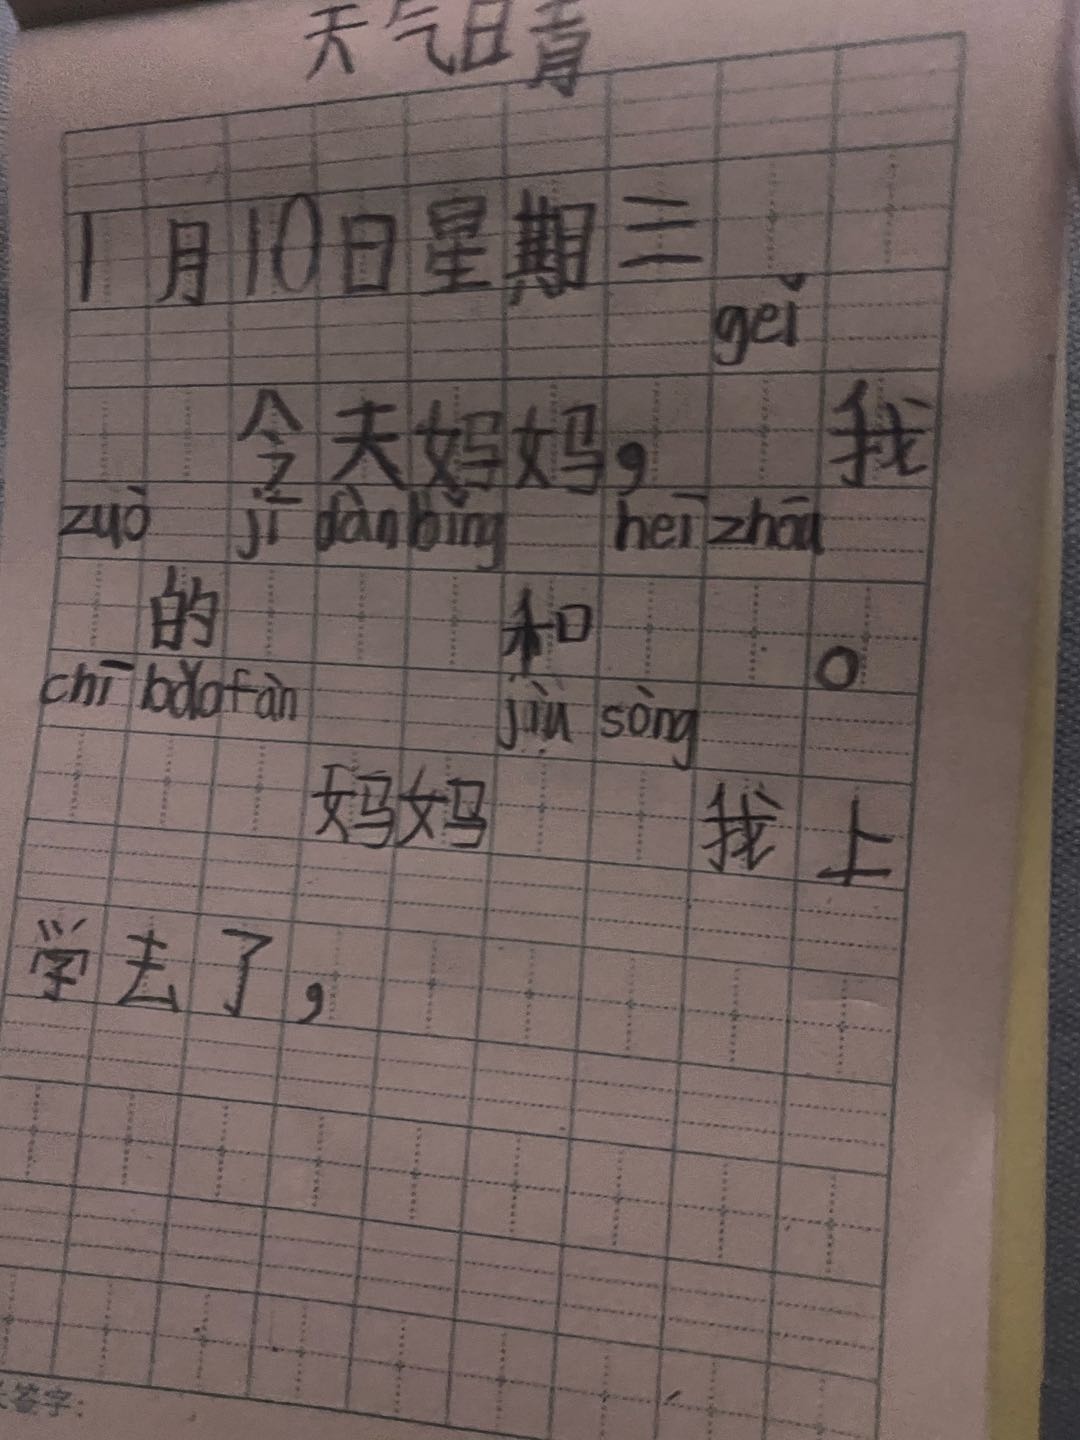 天气日青
1月10日星期三
gěi
今天妈妈， 我
zuò jī dàn bǐng heī zhōu
的 和 。
chī bǎo fàn jiù sòng
妈妈 我上
学去了，
签字：